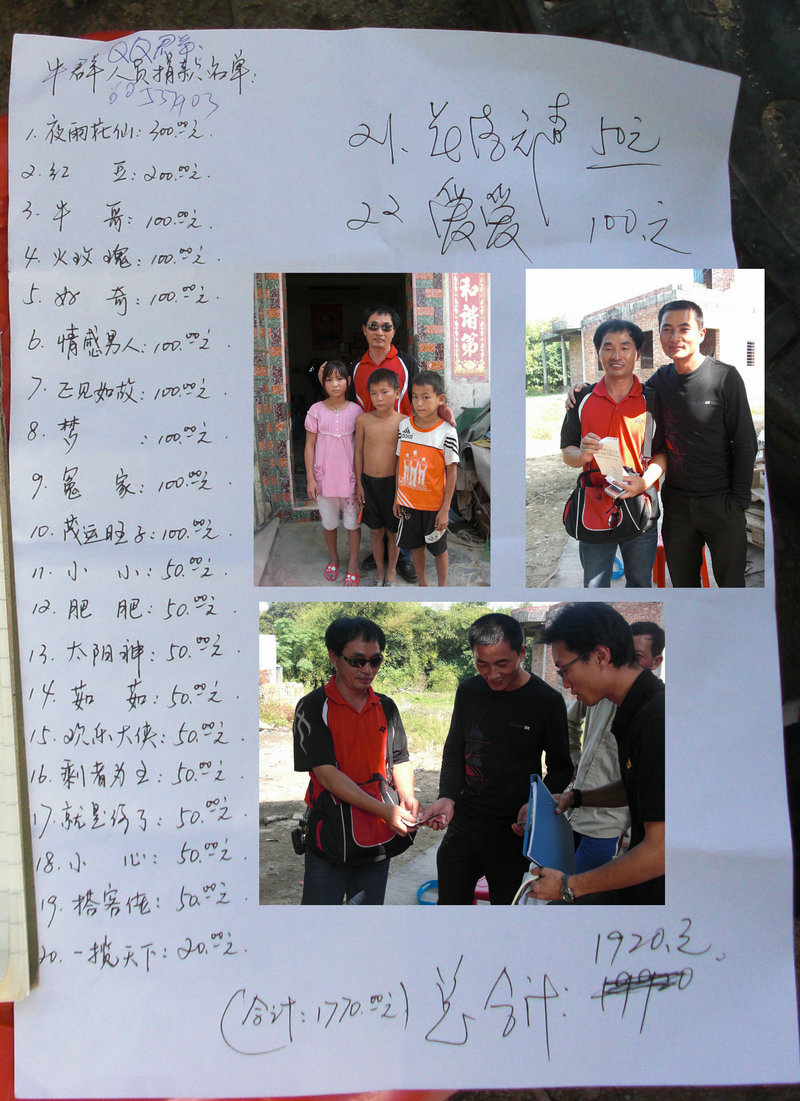 QQ
牛群人员捐款名单:
1. 夜雨花仙: 300.00元.
2. 红 豆: 200.00元.
3. 牛 哥: 100.00元.
4. 火玫瑰: 100.00元.
5. 好 奇: 100.00元.
6. 情感男人: 100.00元.
7. 见如故: 100.00元.
8. 梦 : 100.00元.
9. 冤 家: 100.00元.
10. 茂运旺子: 100.00元.
11. 小 小: 50.00元.
12. 肥 肥: 50.00元.
13. 太阳神: 50.00元.
14. 茹 茹: 50.00元.
15. 欢乐大侠: 50.00元.
16. 剩者为王: 50.00元.
17. 就是 了: 50.00元.
18. 小 心: 50.00元.
19. 搭客佬: 50.00元.
20. 一揽天下: 20.00元.
21. 花 50元
22 爱爱 100元
和谐第
(合计: 1770.00元) 总合计: 1920元.